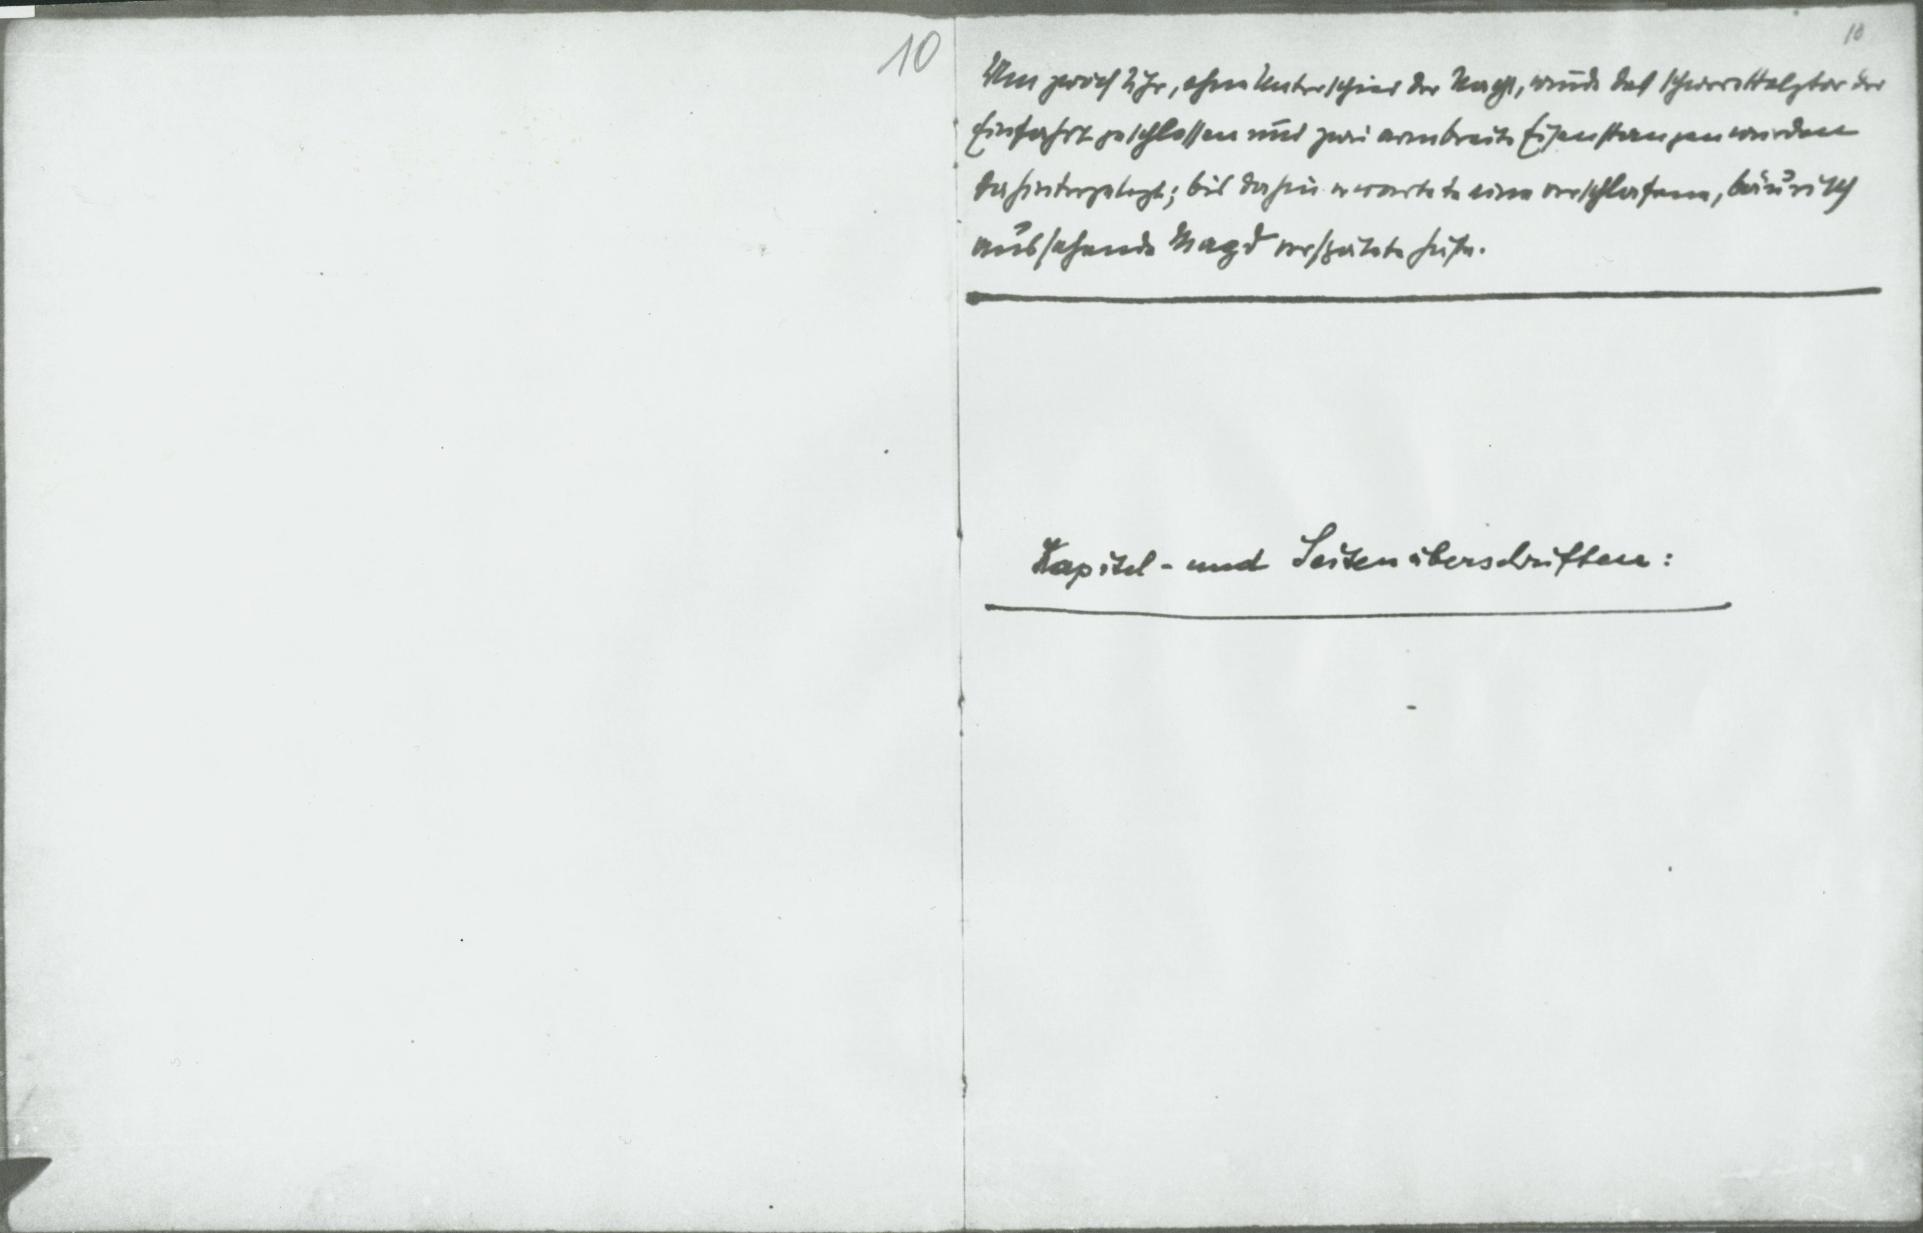 10
10
Um zwölf Uhr, ohne Unterschied der Nacht, wurde das schwere Holztor der
Einfahrt geschlossen und zwei armbreite Eisenstangen wurden
dahintergelegt; bis dahin erwartete eine verschlafene, bäurisch
aussehende Magd verspätete Gäste.
Kapitel- und Seitenüberschriften: